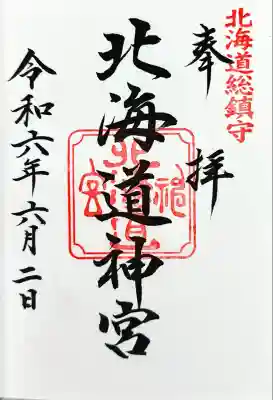 北海道総鎮守
奉拝
北海道神宮
北海道神宮
令和六年六月二日